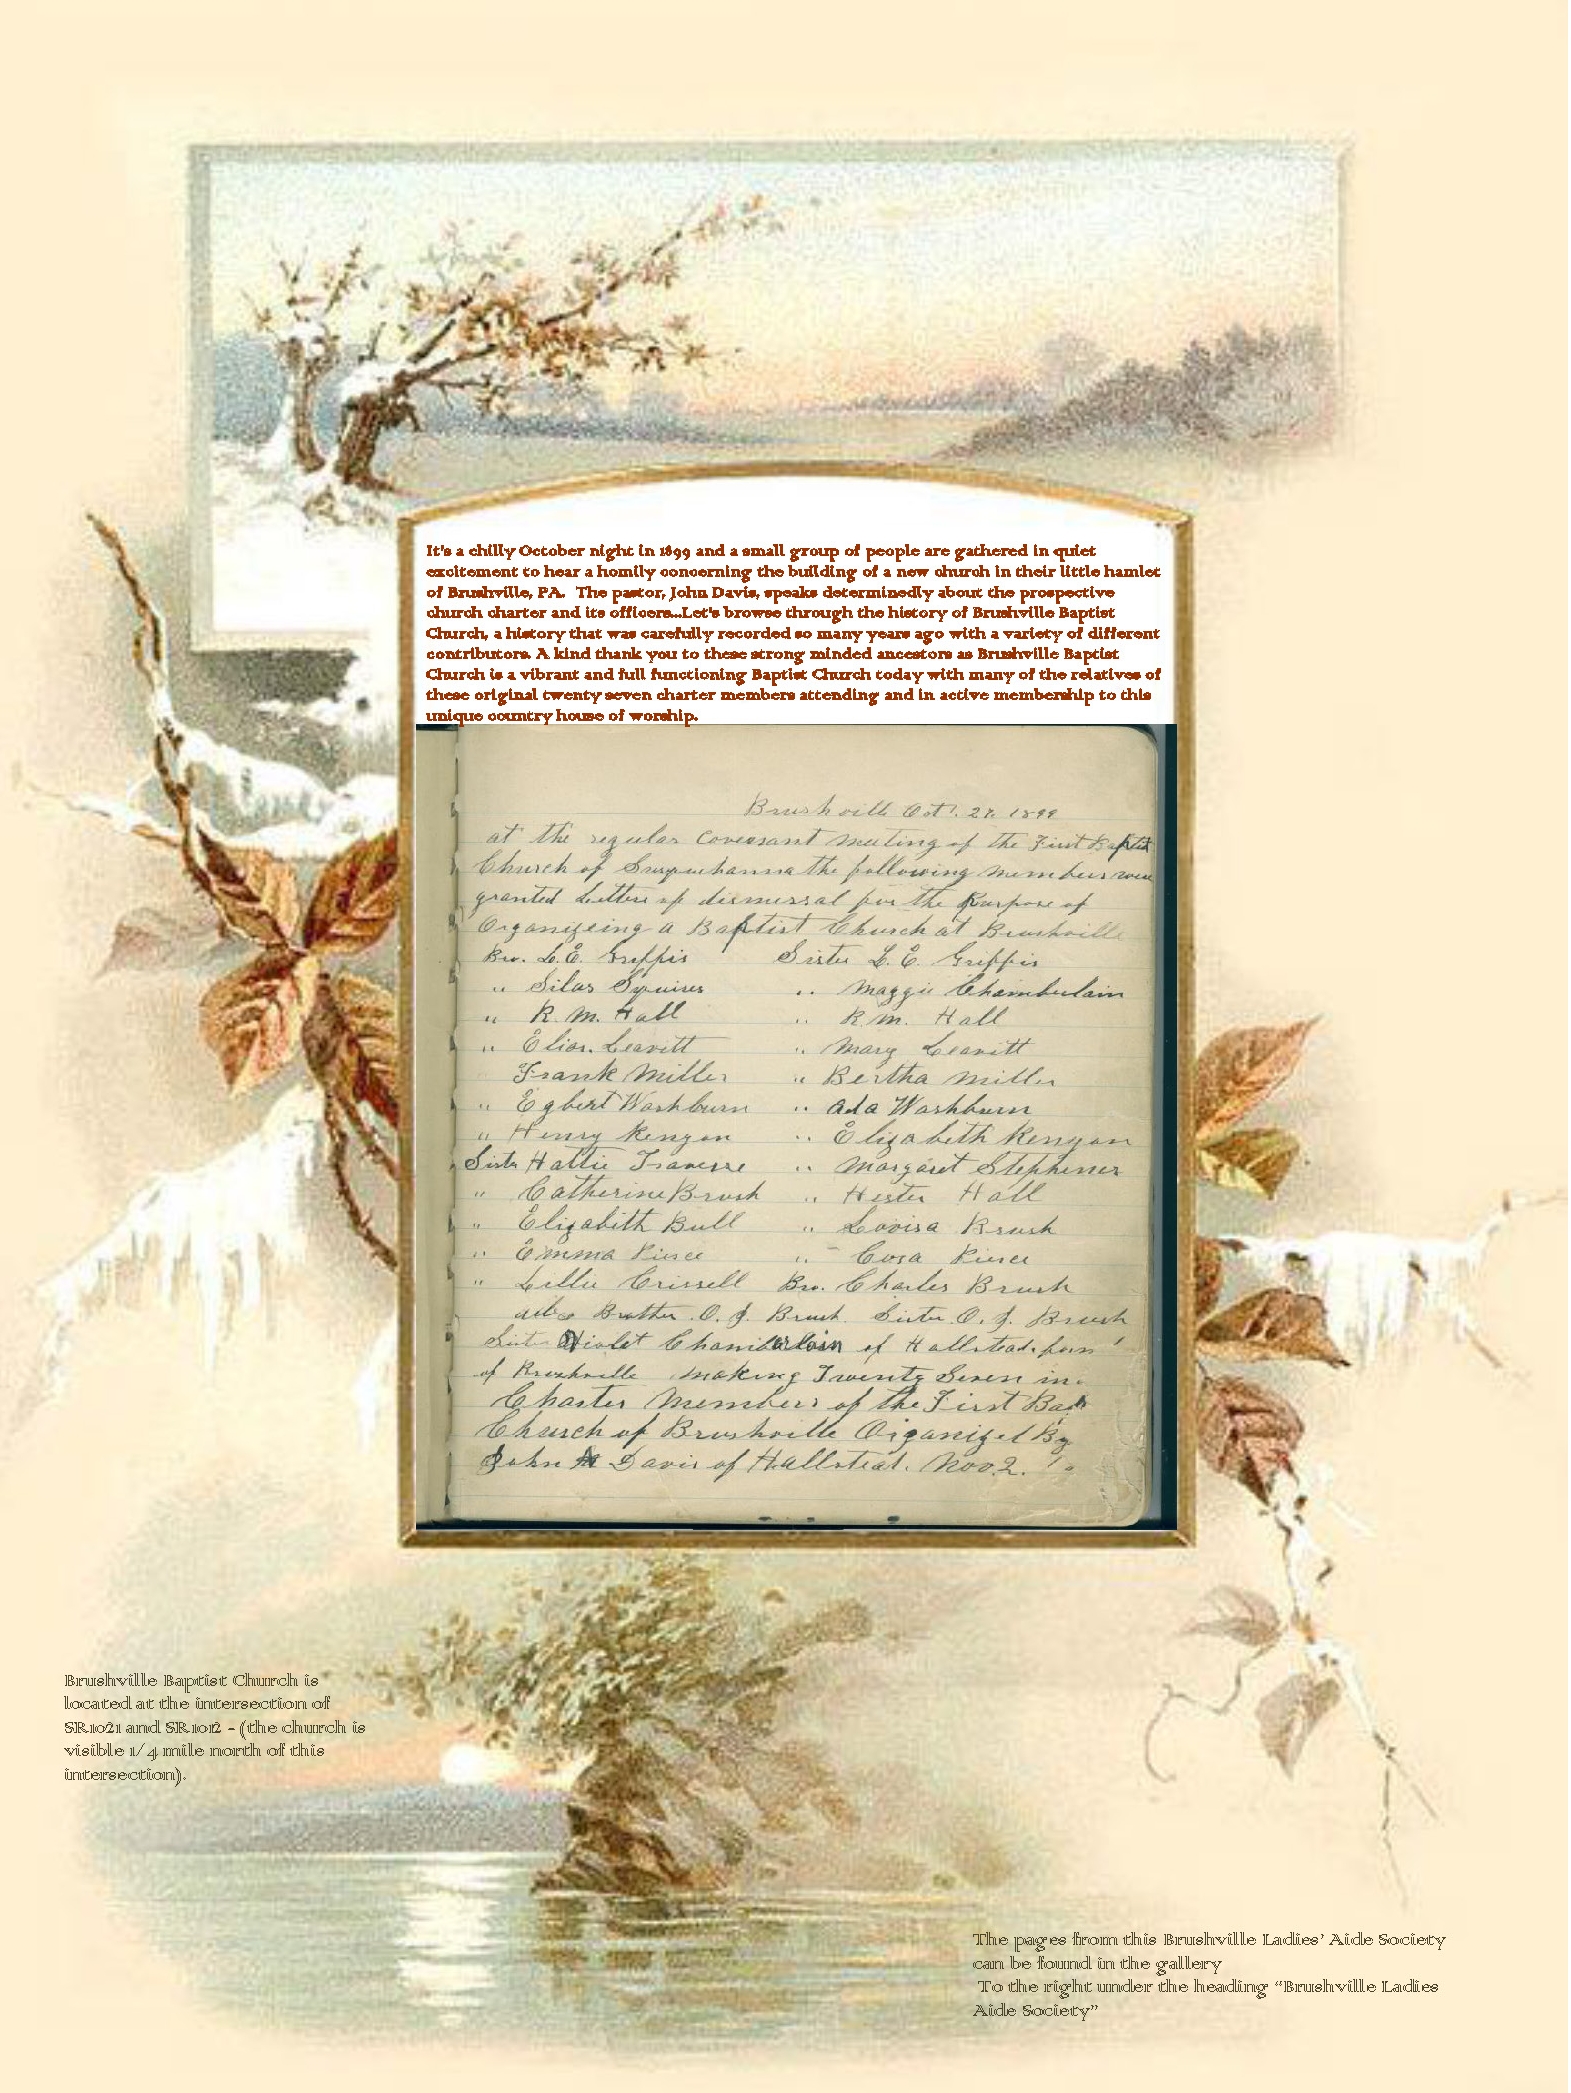 It's a chilly October night in 1899 and a small group of people are gathered in quiet
excitement to hear a homily concerning the building of a new church in their little hamlet
of Brushville, PA.  The pastor, John Davis, speaks determinedly about the prospective
church charter and its officers...Let's browse through the history of Brushville Baptist
Church, a history that was carefully recorded so many years ago with a variety of different
contributors. A kind thank you to these strong minded ancestors as Brushville Baptist
Church is a vibrant and full functioning Baptist Church today with many of the relatives of
these original twenty seven charter members attending and in active membership to this
unique country house of worship.
Brushville Oct. 28. 1899
at the regular Covenant Meeting of the First Baptist
Church of Susquehanna the following members were
granted Letters of dismissal for the Purpose of
Organizeing a Baptist Church at Brushville
Bro. L. E. Griffis Sister L. E. Griffis
" Silas Squires " Maggie Chamberlain
" R. M. Hall " R. M. Hall
" Leavitt " Mary Leavitt
Frank Miller " Bertha Miller
" Egbert Washburn " Ada Washburn
" Henry Kenyon " Elizabeth Kenyon
Sister Hattie Traverse " Margaret Stephens
" Catherine Brush " Hester Hall
" Elizabeth Bull " Lovisa Brush
" Emma Pierce " Cora Pierce
" Lillie Crissell Bro. Charles Brush
also Brother O. J. Brush Sister O. J. Brush
Sister Violet Chamberlain of Hallstead.
of Brushville making Twenty Seven in
Charter Members of the First
Church of Brushville Organized By
John Davis of Hallstead. Nov 2.
Brushville Baptist Church is
located at the intersection of
SR1021 and SR1012 - (the church is
visible 1/4 mile north of this
intersection).
The pages from this Brushville Ladies' Aide Society
can be found in the gallery
To the right under the heading "Brushville Ladies
Aide Society"